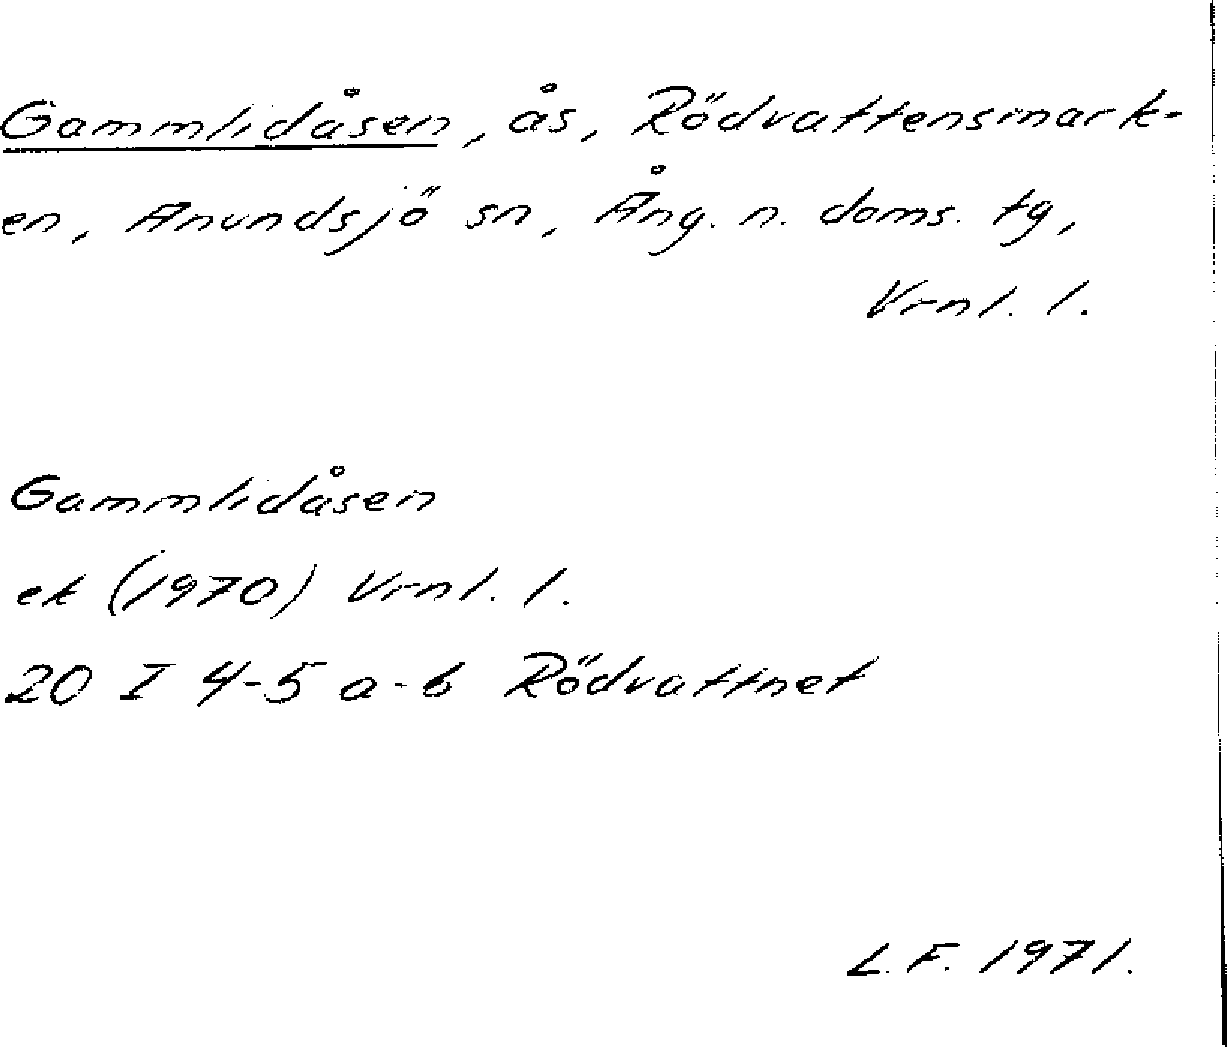 Gammlidåsen, ås, Rödvattensmark-
en, Anundsjö sn, Ång. n. doms. tg,
Vrnl. l.
Gammlidåsen
ek (1970) Vrnl. l.
20 I 4-5 a-b Rödvattnet
L.F. 1971.